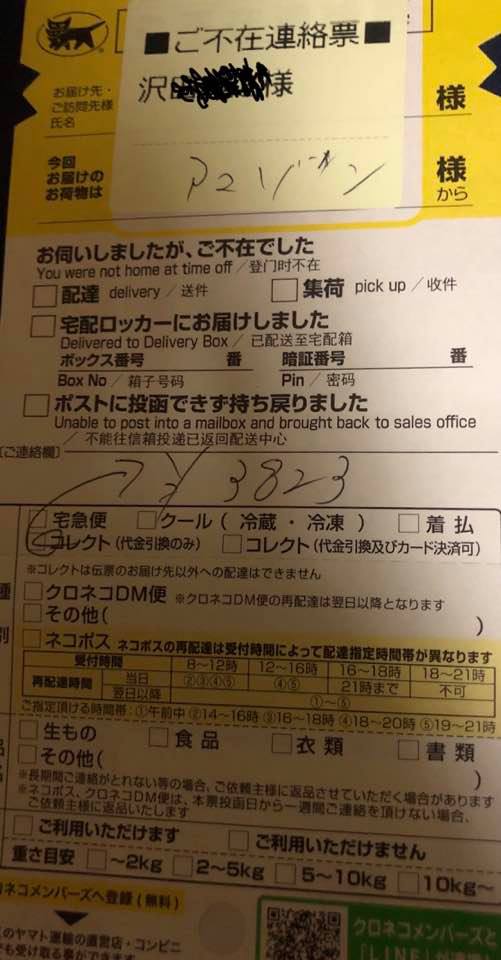 ■ご不在連絡票■
お届け先・
ご訪問先様
氏名
沢 様
様
今回
お届けの
お荷物は
アマゾン
様
から
お伺いしましたが、ご不在でした
You were not home at time off / 登门时不在
配達 delivery / 送件
集荷 pick up / 收件
宅配ロッカーにお届けしました
Delivered to Delivery Box / 已配送至宅配箱
ボックス番号 番 暗証番号 番
Box No / 箱子号码 Pin / 密码
ポストに投函できず持ち戻りました
Unable to post into a mailbox and brought back to sales office
/ 不能往信箱投递已返回配送中心
[ご連絡欄]
¥3823
宅急便 クール ( 冷蔵・冷凍 ) 着払
コレクト (代金引換のみ) コレクト (代金引換及びカード決済可)
※コレクトは伝票のお届け先以外への配達はできません
種
別
クロネコDM便 ※クロネコDM便の再配達は翌日以降となります
その他( )
ネコポス ネコポスの再配達は受付時間によって配達指定時間帯が異なります
受付時間 8~12時 12~16時 16~18時 18~21時
再配達時間 当日 ②③④⑤ ④⑤ 21時まで 不可
翌日以降 ①~⑤
ご指定頂ける時間帯:①午前中 ②14~16時 ③16~18時 ④18~20時 ⑤19~21時
品
名
生もの 食品 衣類 書類
その他( )
※長期間ご連絡がとれない等の場合、ご依頼主様に返品させていただく場合があります
※ネコポス、クロネコDM便は、本票投函日から一週間ご連絡を頂けない場合、
ご依頼主様に返品いたします
ご利用いただけます ご利用いただけません
重さ目安 ~2kg 2~5kg 5~10kg 10kg~
ロネコメンバーズへ登録 (無料)
のヤマト運輸の直営店・コンビニ
でも受け取る事ができます
クロネコメンバーズと
「LINE」が連携